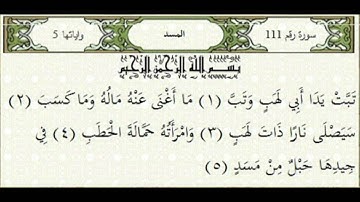 سورة رقم 111 المسد واياتها 5
بسم الله الرحمن الرحيم
تَبَّتْ يَدَا أَبِي لَهَبٍ وَتَبَّ (١) مَا أَغْنَى عَنْهُ مَالُهُ وَمَا كَسَبَ (٢)
سَيَصْلَى نَارًا ذَاتَ لَهَبٍ (٣) وَامْرَأَتُهُ حَمَّالَةَ الْحَطَبِ (٤) فِي
جِيدِهَا حَبْلٌ مِنْ مَسَدٍ (٥)